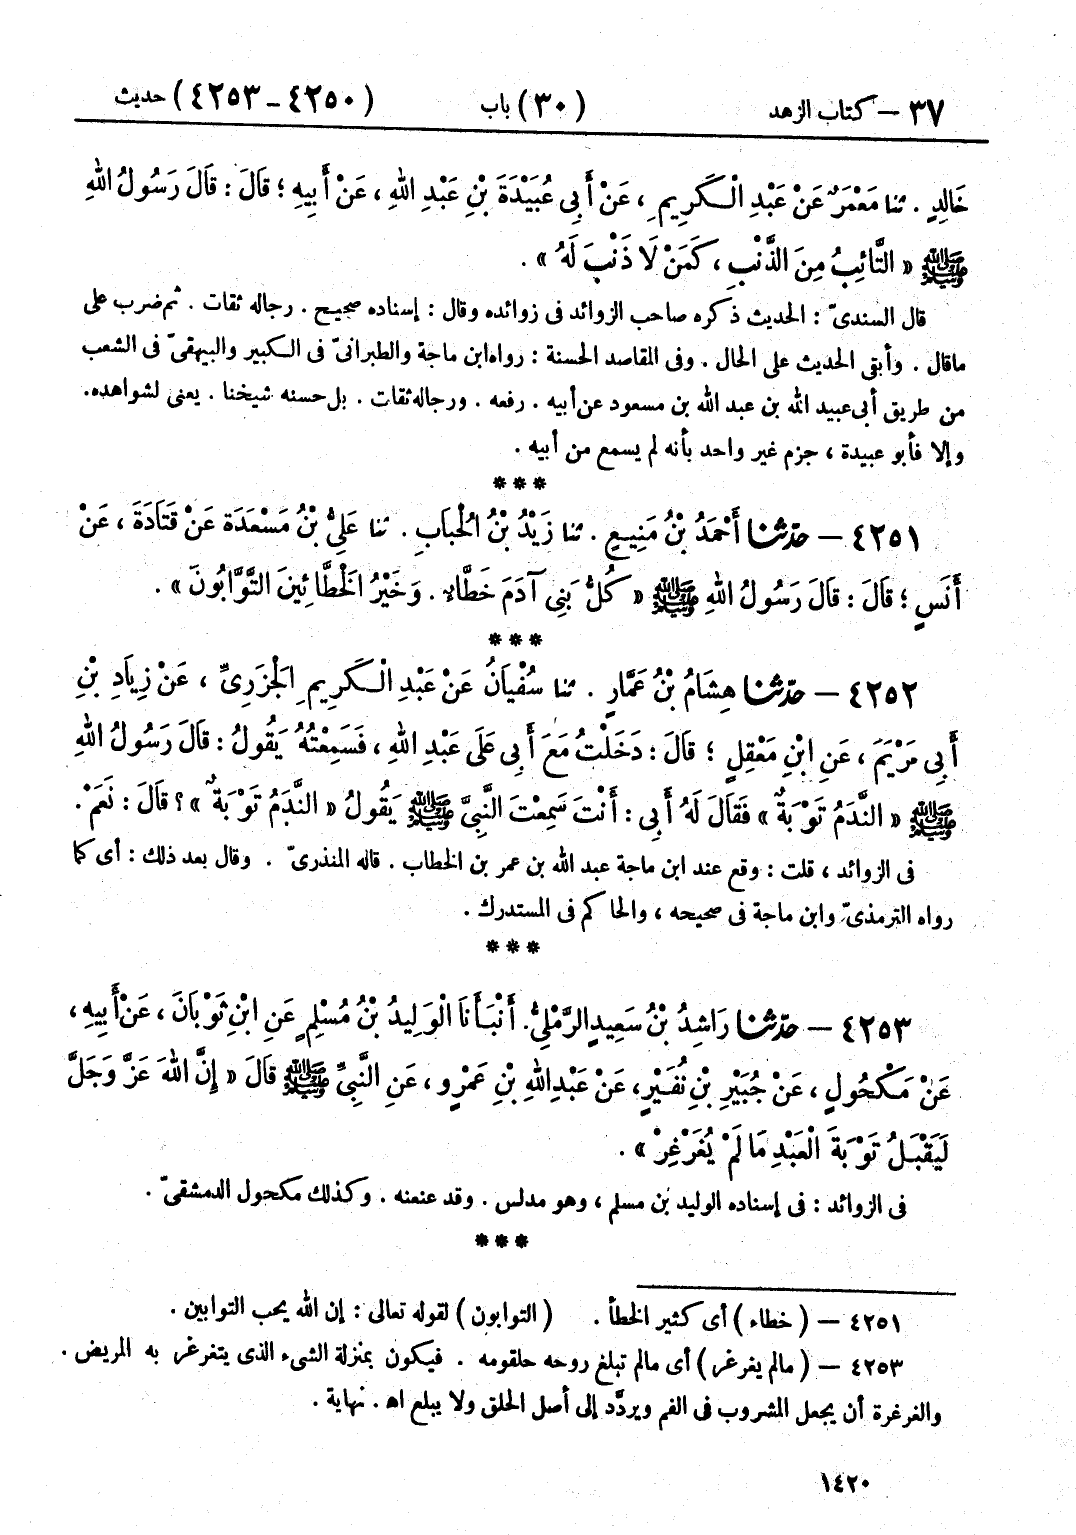 ٣٧ – كتاب الزهد (٣٠) باب (٤٢٥٠ – ٤٢٥٣) حديث
خَالِدٍ . ثنا مَعْمَرٌ عَنْ عَبْدِ الْكَرِيمِ ، عَنْ أَبِى عُبَيْدَةَ بْنِ عَبْدِ اللهِ ، عَنْ أَبِيهِ ؛ قَالَ : قَالَ رَسُولُ اللهِ
ﷺ « التَّائِبُ مِنَ الذَّنْبِ ، كَمَنْ لَا ذَنْبَ لَهُ » .
قال السندىّ : الحديث ذكره صاحب الزوائد فى زوائده وقال : إسناده صحيح . رجاله ثقات . ثم ضرب على
ماقال . وأبقى الحديث على الحال . وفى المقاصد الحسنة : رواه ابن ماجة والطبرانىّ فى الكبير والبيهقىّ فى الشعب
من طريق أبى عبيد الله بن عبد الله بن مسعود عن أبيه . رفعه . ورجاله ثقات . بل حسنه شيخنا . يعنى لشواهده.
وإلا فأبو عبيدة ، جزم غير واحد بأنه لم يسمع من أبيه .
***
٤٢٥١ – حدّثنا أَحْمَدُ بْنُ مَنِيعٍ . ثنا زَيْدُ بْنُ الْحُبَابِ . ثنا عَلِىُّ بْنُ مَسْعَدَةَ عَنْ قَتَادَةَ ، عَنْ
أَنَسٍ ؛ قَالَ : قَالَ رَسُولُ اللهِ ﷺ « كُلُّ بَنِى آدَمَ خَطَّاءٌ . وَخَيْرُ الْخَطَّائِينَ التَّوَّابُونَ » .
***
٤٢٥٢ – حدّثنا هِشَامُ بْنُ عَمَّارٍ . ثنا سُفْيَانُ عَنْ عَبْدِ الْكَرِيمِ الْجَزَرِىِّ ، عَنْ زِيَادِ بْنِ
أَبِى مَرْيَمَ ، عَنِ ابْنِ مَعْقِلٍ ؛ قَالَ : دَخَلْتُ مَعَ أَبِى عَلَى عَبْدِ اللهِ ، فَسَمِعْتُهُ يَقُولُ : قَالَ رَسُولُ اللهِ
ﷺ « النَّدَمُ تَوْبَةٌ » فَقَالَ لَهُ أَبِى : أَنْتَ سَمِعْتَ النَّبِىَّ ﷺ يَقُولُ « النَّدَمُ تَوْبَةٌ » ؟ قَالَ : نَعَمْ .
فى الزوائد ، قلت : وقع عند ابن ماجة عبد الله بن عمر بن الخطاب . قاله المنذرىّ . وقال بعد ذلك : أى كما
رواه الترمذىّ وابن ماجة فى صحيحه ، والحاكم فى المستدرك .
***
٤٢٥٣ – حدّثنا رَاشِدُ بْنُ سَعِيدٍ الرَّمْلِىُّ. أَنْبَأَنَا الْوَلِيدُ بْنُ مُسْلِمٍ عَنِ ابْنِ ثَوْبَانَ ، عَنْ أَبِيهِ ،
عَنْ مَكْحُولٍ ، عَنْ جُبَيْرِ بْنِ نُفَيْرٍ، عَنْ عَبْدِ اللهِ بْنِ عَمْرٍو ، عَنِ النَّبِىِّ ﷺ قَالَ « إِنَّ اللهَ عَزَّ وَجَلَّ
لَيَقْبَلُ تَوْبَةَ الْعَبْدِ مَا لَمْ يُغَرْغِرْ » .
فى الزوائد : فى إسناده الوليد بن مسلم ، وهو مدلس . وقد عنعنه . وكذلك مكحول الدمشقىّ .
***
٤٢٥١ – ( خطاء ) أى كثير الخطأ . ( التوابون ) لقوله تعالى : إن الله يحب التوابين .
٤٢٥٣ – ( مالم يغرغر ) أى مالم تبلغ روحه حلقومه . فيكون بمنزلة الشىء الذى يتغرغر به المريض .
والغرغرة أن يجعل المشروب فى الفم ويردَّد إلى أصل الحلق ولا يبلع اه . نهاية .
١٤٢٠